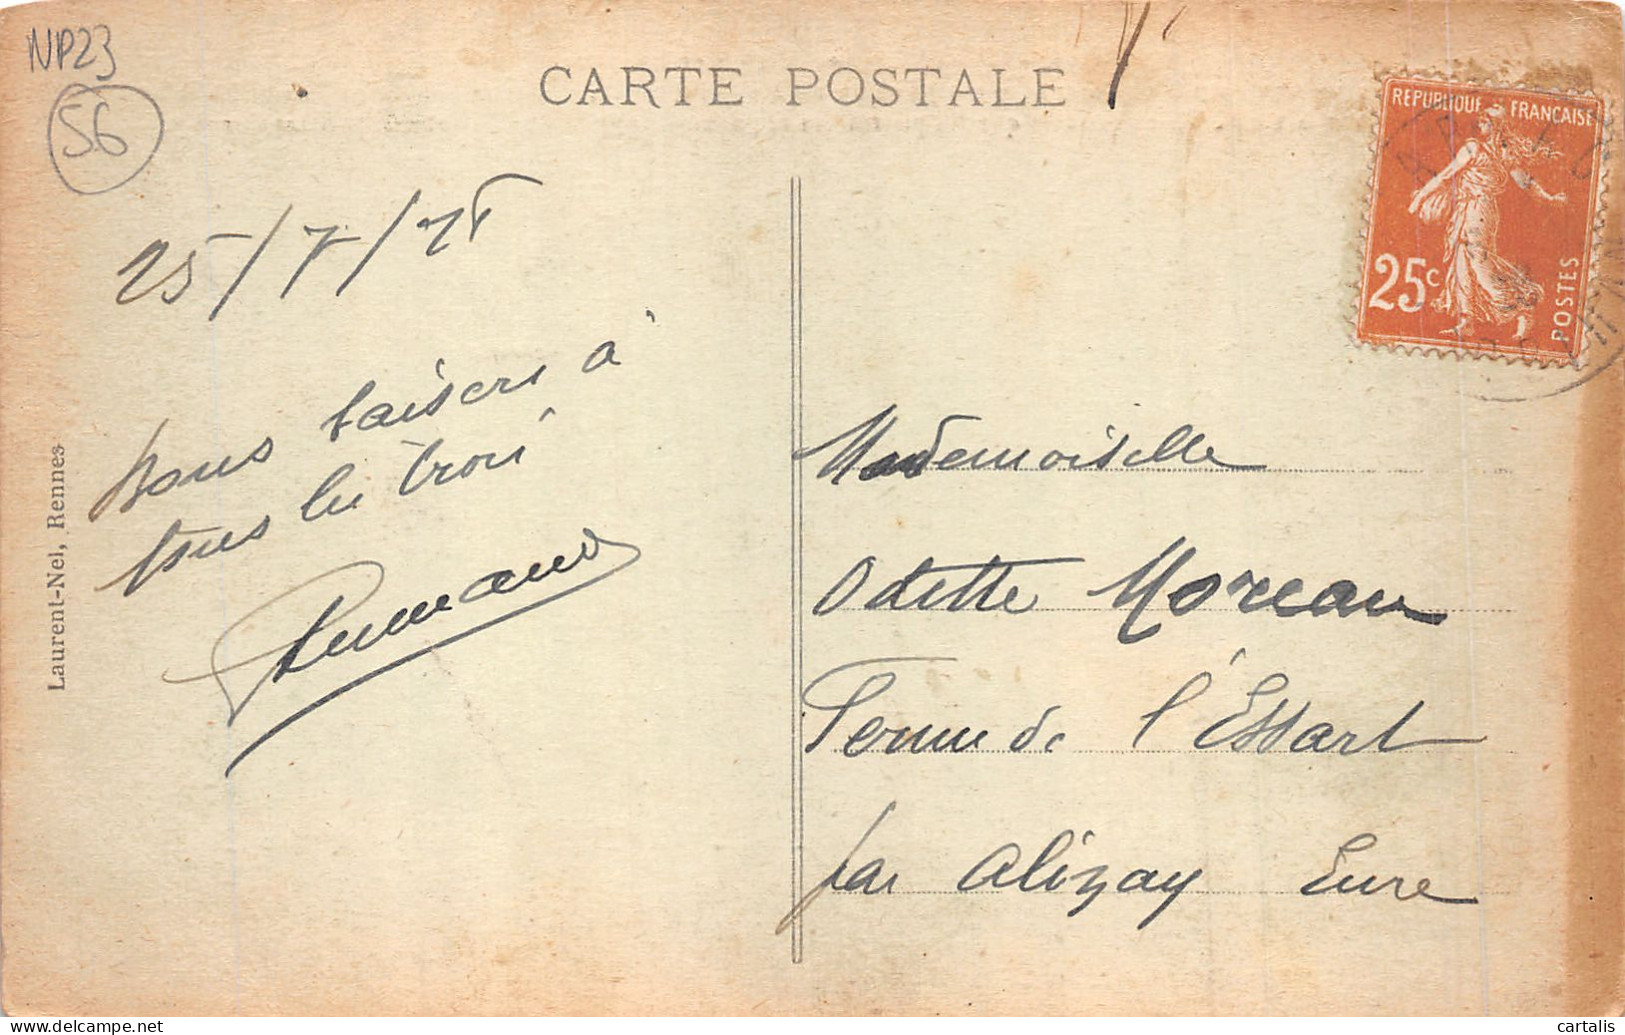 NP23
56
CARTE POSTALE
REPUBLIQUE FRANCAISE
25c
POSTES
25/7/25
Bons baisers à
tous les trois
Laurent-Nel, Rennes
Mademoiselle
Odette Moreau
Ferme de l'Essart
par Alizay Eure
cartalis